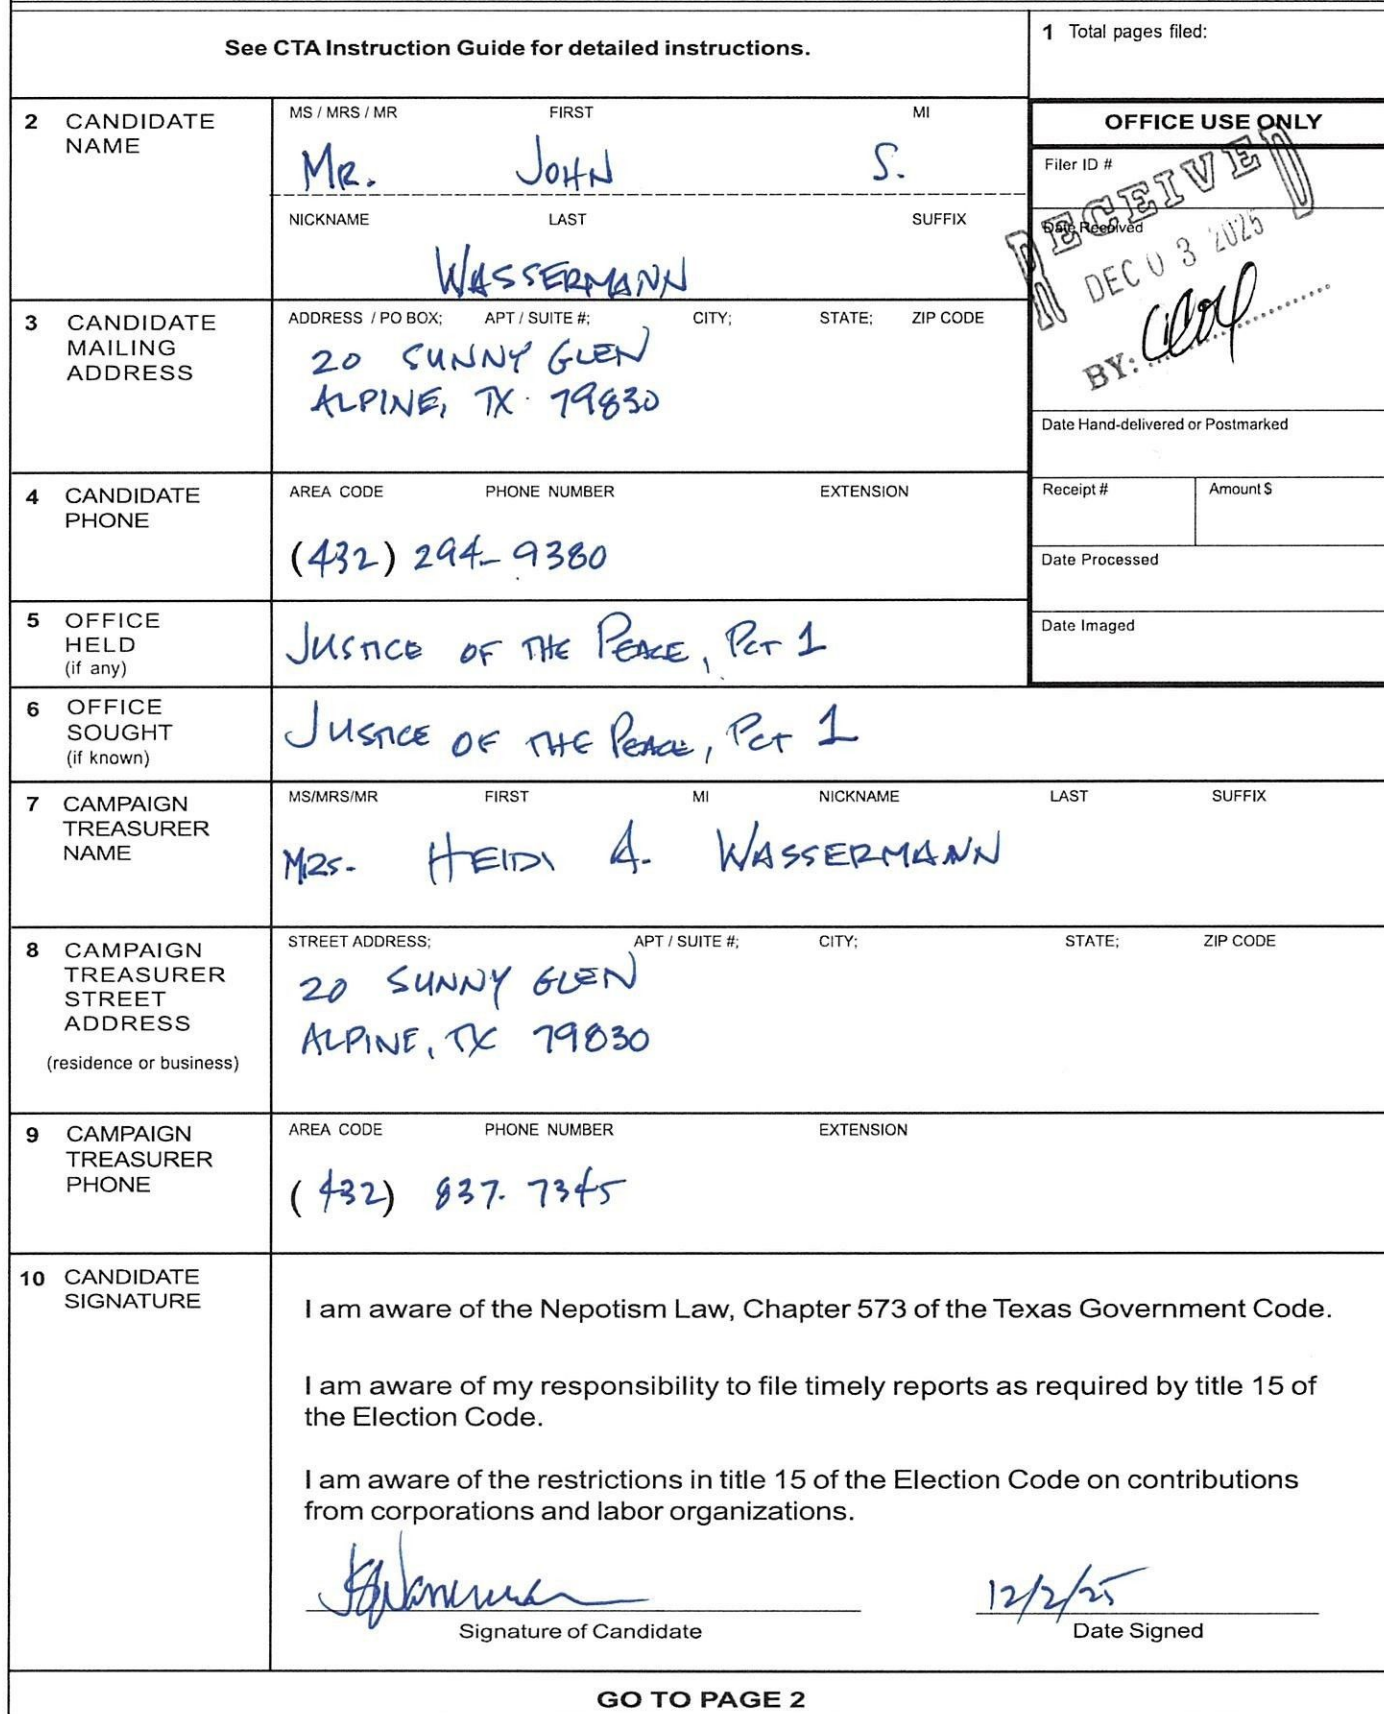 See CTA Instruction Guide for detailed instructions.
1 Total pages filed:
2 CANDIDATE NAME
MS / MRS / MR FIRST MI
MR. JOHN S.
NICKNAME LAST SUFFIX
WASSERMANN
OFFICE USE ONLY
Filer ID #
RECEIVED
Date Received
DEC 03 2025
BY:
Date Hand-delivered or Postmarked
Receipt # Amount $
Date Processed
Date Imaged
3 CANDIDATE MAILING ADDRESS
ADDRESS / PO BOX; APT / SUITE #; CITY; STATE; ZIP CODE
20 SUNNY GLEN
ALPINE, TX 79830
4 CANDIDATE PHONE
AREA CODE PHONE NUMBER EXTENSION
(432) 294-9380
5 OFFICE HELD (if any)
JUSTICE OF THE PEACE, PCT 1
6 OFFICE SOUGHT (if known)
JUSTICE OF THE PEACE, PCT 1
7 CAMPAIGN TREASURER NAME
MS/MRS/MR FIRST MI NICKNAME LAST SUFFIX
MRS. HEIDI A. WASSERMANN
8 CAMPAIGN TREASURER STREET ADDRESS (residence or business)
STREET ADDRESS; APT / SUITE #; CITY; STATE; ZIP CODE
20 SUNNY GLEN
ALPINE, TX 79830
9 CAMPAIGN TREASURER PHONE
AREA CODE PHONE NUMBER EXTENSION
(432) 837-7345
10 CANDIDATE SIGNATURE
I am aware of the Nepotism Law, Chapter 573 of the Texas Government Code.
I am aware of my responsibility to file timely reports as required by title 15 of
the Election Code.
I am aware of the restrictions in title 15 of the Election Code on contributions
from corporations and labor organizations.
12/2/25
Signature of Candidate Date Signed
GO TO PAGE 2